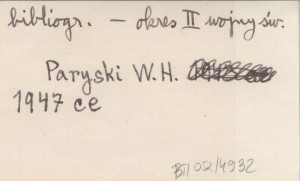 bibliogr. – okres II wojny św.
Paryski W.H.
1947 ce
BT/02/4932